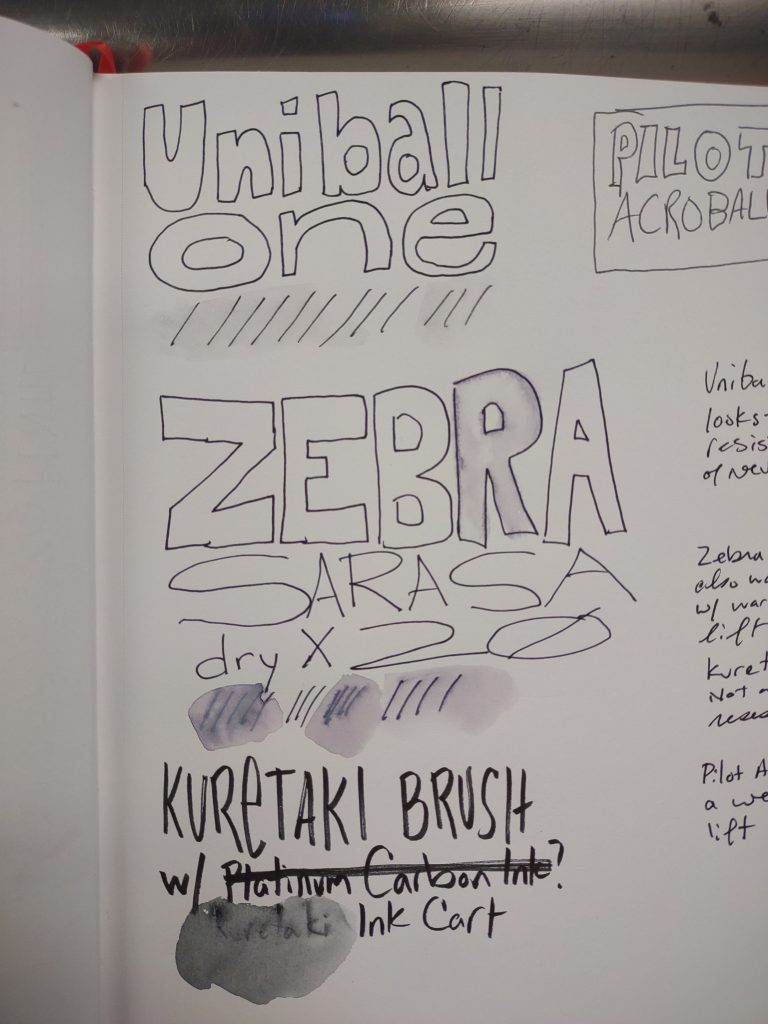 Uniball
one
PILOT
ACROBALL
ZEBRA
SARASA
dry x 20
KURETAKI BRUSH
w/ Platinum Carbon Ink?
Kuretaki Ink Cart
Uniba
looks
resis
of new
Zebra
also wa
w/ war
lift
Kuret
Not a
resea
Pilot A
a we
lift